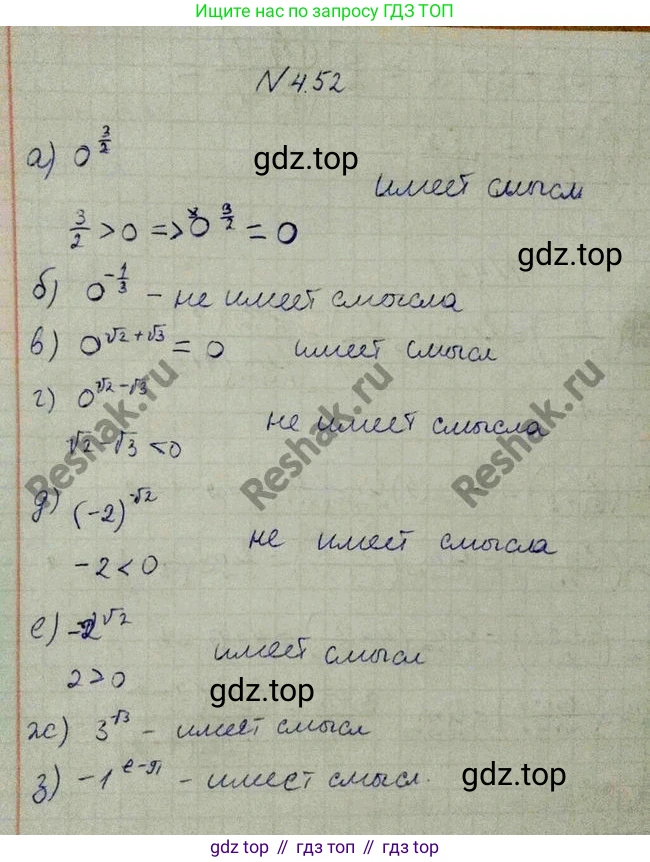 Ищите нас по запросу ГДЗ ТОП
N 4.52
а) 0^{3/2}
gdz.top
имеет смысл
3/2 > 0 => 0^{3/2} = 0
gdz.top
б) 0^{-1/3} - не имеет смысла
в) 0^{√2+√3} = 0 имеет смысл
г) 0^{√2-√3}
не имеет смысла
√2 - √3 < 0
Reshak.ru
Reshak.ru
Reshak.ru
д) (-2)^{-√2}
не имеет смысла
-2 < 0
е) -2^{√2}
имеет смысл
2 > 0
gdz.top
ж) 3^{-√3} - имеет смысл
з) -1^{e-π} - имеет смысл.
gdz.top
gdz top // гдз топ // gdz.top